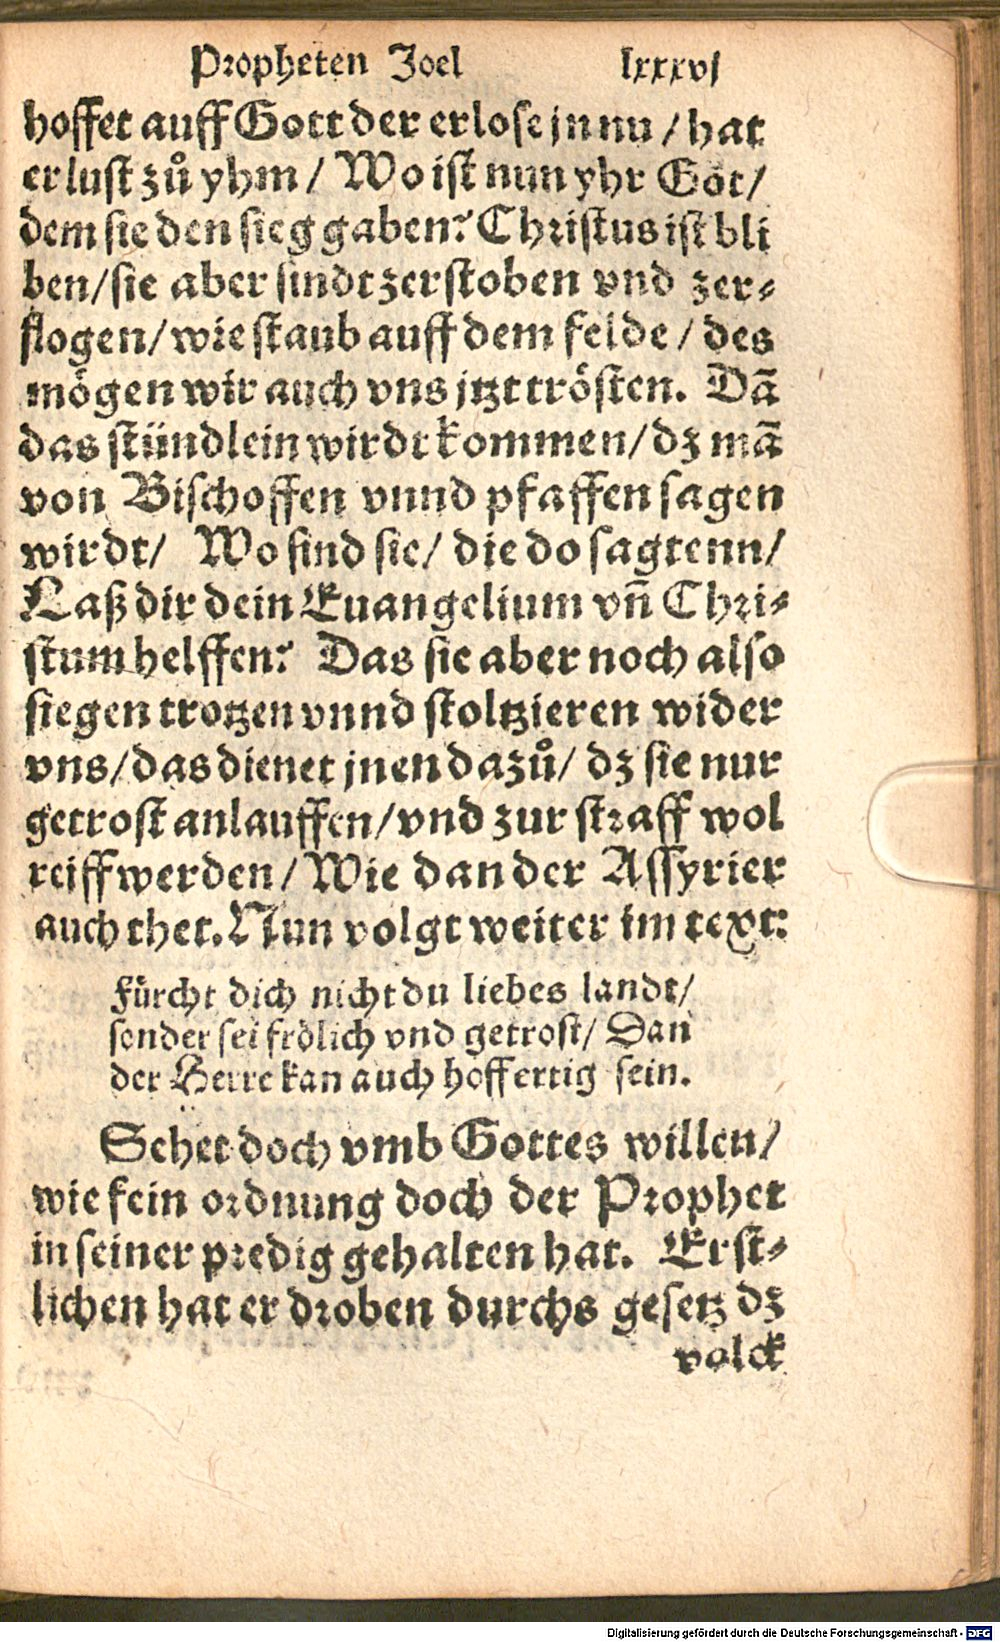 Propheten Joel lxxxvj
hoffet auff Gott der erlose jn nu / hat
er lust zů yhm / Wo ist nun yhr Got /
dem sie den sieg gaben? Christus ist bli
ben / sie aber sindt zerstoben vnd zer-
flogen / wie staub auff dem felde / des
mögen wir auch vns jtzt trösten. Dañ
das stündlein wirdt kommen / dz mā
von Bischoffen vnnd pfaffen sagen
wirdt / Wo sind sie / die do sagtenn /
Laß dir dein Euangelium vñ Chri-
stum helffen? Das sie aber noch also
siegen trotzen vnnd stoltzieren wider
vns / das dienet jnen dazů / dz sie nur
getrost anlauffen / vnd zur straff wol
reiff werden / Wie dan der Assyrier
auch thet. Nun volgt weiter im text:
Fürcht dich nicht du liebes landt /
sonder sei frölich vnd getrost / Dan
der Herre kan auch hoffertig sein.
Sehet doch vmb Gottes willen /
wie fein ordnung doch der Prophet
in seiner predig gehalten hat. Erst-
lichen hat er droben durchs gesetz dz
volck
Digitalisierung gefördert durch die Deutsche Forschungsgemeinschaft - DFG